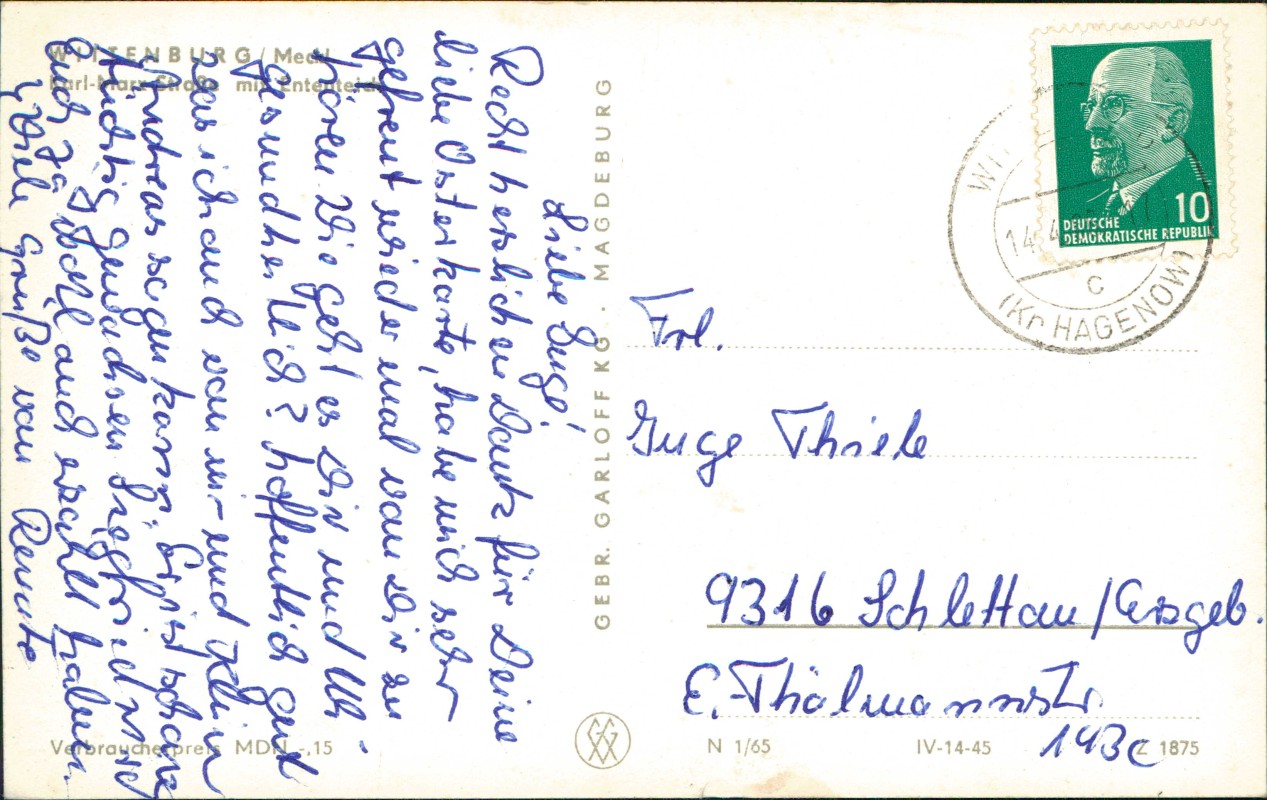 WITTENBURG / Meckl.
Karl-Marx-Straße mit Ententeich
Liebe Inge!
Recht herzlichen Dank für Deine
liebe Osterkarte, habe mich sehr
gefreut wieder mal von Dir zu
hören. Wie geht es Dir und
gesundheitlich? Hoffentlich gut
was ich auch von mir und Klein
Andreas sagen kann. Er ist schon
tüchtig geworden
Euch
Viele Grüße von Renate
Verbraucherpreis MDN -,15
GEBR. GARLOFF KG · MAGDEBURG
N 1/65
IV-14-45
Z 1875
10
DEUTSCHE
DEMOKRATISCHE REPUBLIK
WI
14.4.
C
(Kr HAGENOW)
Frl.
Inge Thiele
9316 Schlettau/Erzgeb.
E.-Thälmannstr.
143c